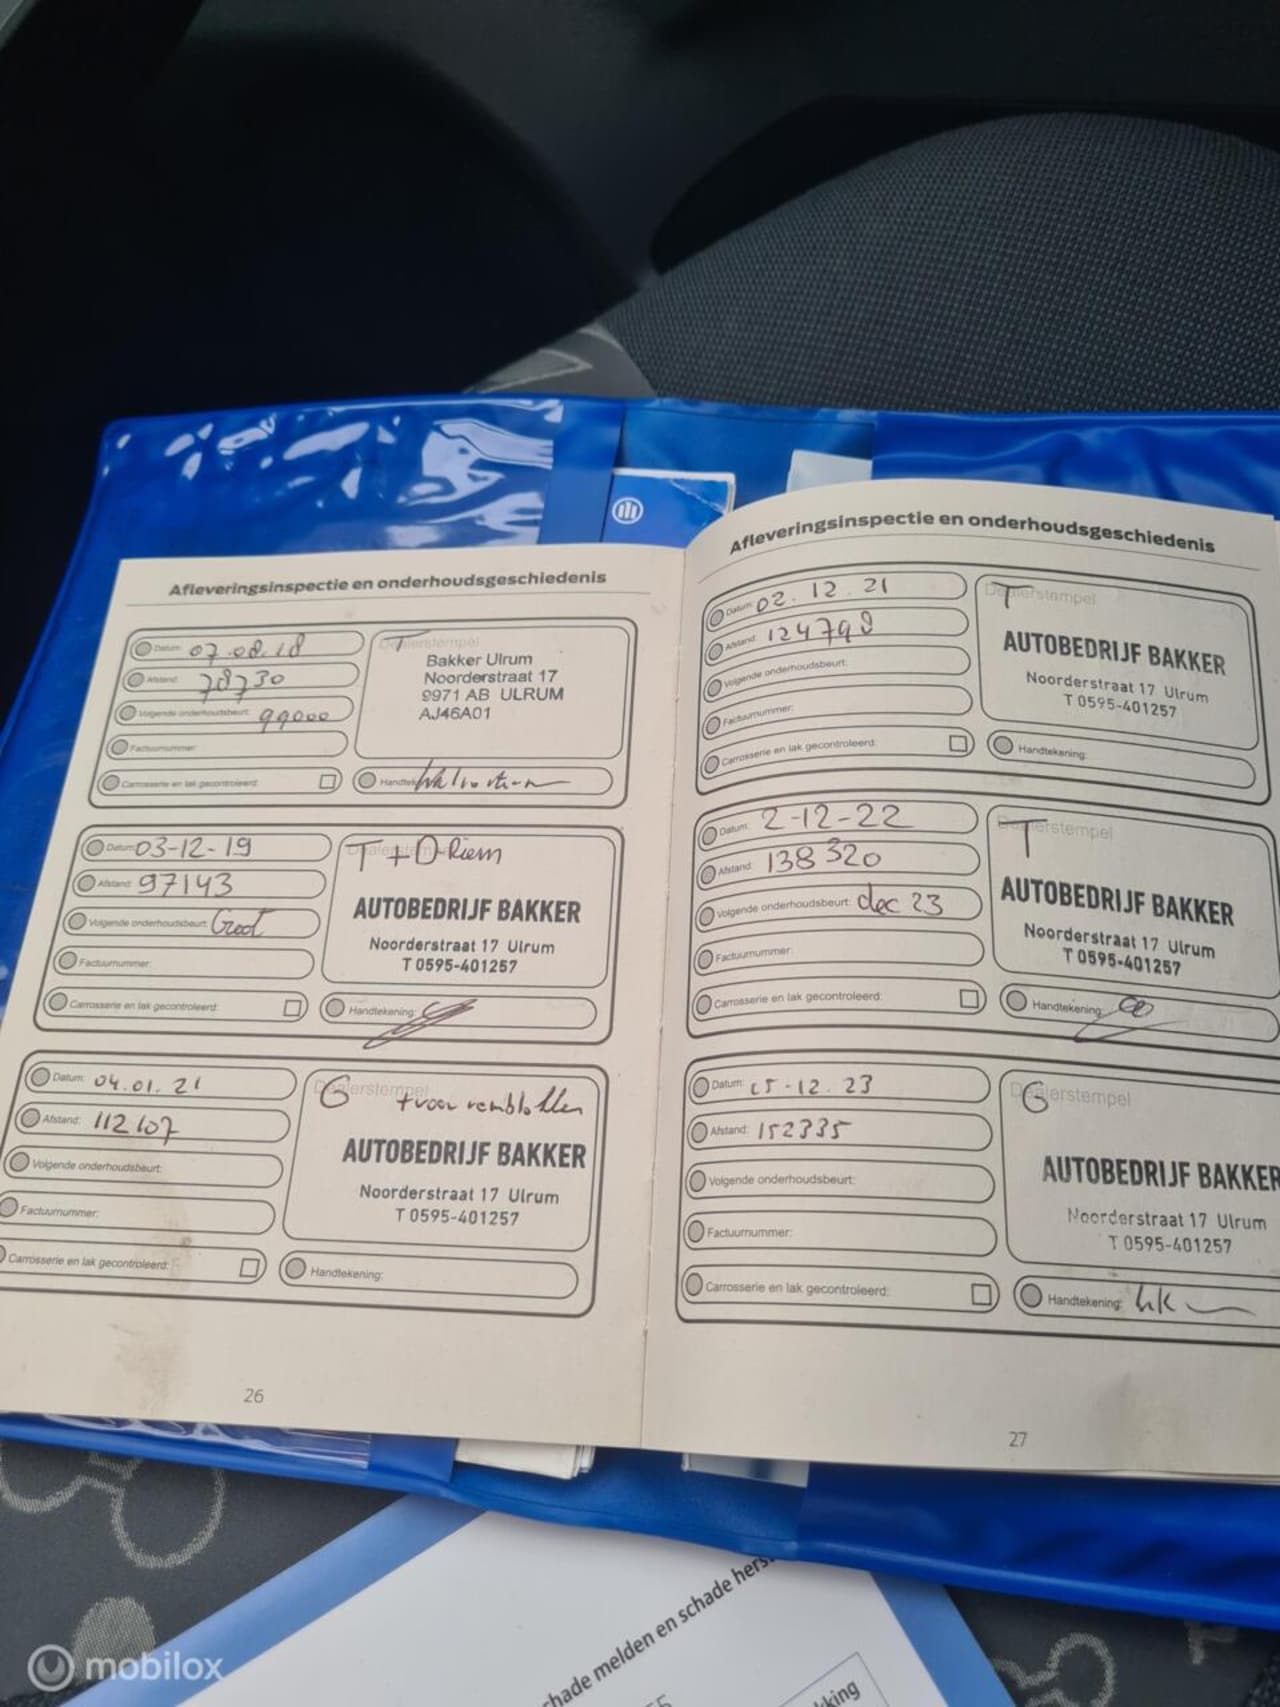 Afleveringsinspectie en onderhoudsgeschiedenis
Datum: 07.08.18
Afstand: 78730
Volgende onderhoudsbeurt: 99000
Factuurnummer:
Carrosserie en lak gecontroleerd:
T
Dealerstempel
Bakker Ulrum
Noorderstraat 17
9971 AB ULRUM
AJ46A01
Datum: 03-12-19
Afstand: 97143
Volgende onderhoudsbeurt: Groot
Factuurnummer:
Carrosserie en lak gecontroleerd:
T + D-Riem
Dealerstempel
AUTOBEDRIJF BAKKER
Noorderstraat 17 Ulrum
T 0595-401257
Handtekening:
Datum: 04.01.21
Afstand: 112107
Volgende onderhoudsbeurt:
Factuurnummer:
Carrosserie en lak gecontroleerd:
G + voor remblokken
Dealerstempel
AUTOBEDRIJF BAKKER
Noorderstraat 17 Ulrum
T 0595-401257
Handtekening:
26
Afleveringsinspectie en onderhoudsgeschiedenis
Datum: 02.12.21
Afstand: 124798
Volgende onderhoudsbeurt:
Factuurnummer:
Carrosserie en lak gecontroleerd:
T
Dealerstempel
AUTOBEDRIJF BAKKER
Noorderstraat 17 Ulrum
T 0595-401257
Handtekening:
Datum: 2-12-22
Afstand: 138320
Volgende onderhoudsbeurt: dec 23
Factuurnummer:
Carrosserie en lak gecontroleerd:
T
Dealerstempel
AUTOBEDRIJF BAKKER
Noorderstraat 17 Ulrum
T 0595-401257
Handtekening:
Datum: 15-12.23
Afstand: 152335
Volgende onderhoudsbeurt:
Factuurnummer:
Carrosserie en lak gecontroleerd:
G
Dealerstempel
AUTOBEDRIJF BAKKER
Noorderstraat 17 Ulrum
T 0595-401257
Handtekening:
27
chade melden en schade hers
mobilox